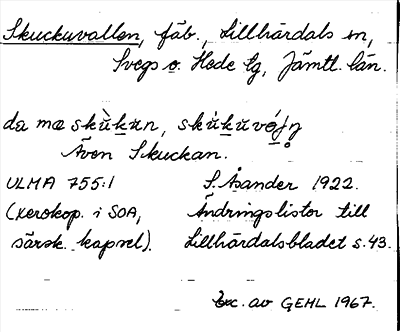 Skuckuvallen, fäb., Lillhärdals sn,
Svegs o. Hede tg, Jämtl. län.
da mæ skùkun, skùkuvóḷn
Även Skuckan.
ULMA 755:1 S. Åsander 1922.
(xerokop. i SOA, Ändringslistor till
särsk. kapsel). Lillhärdalsbladet s. 43.
Exc. av GEHL 1967.